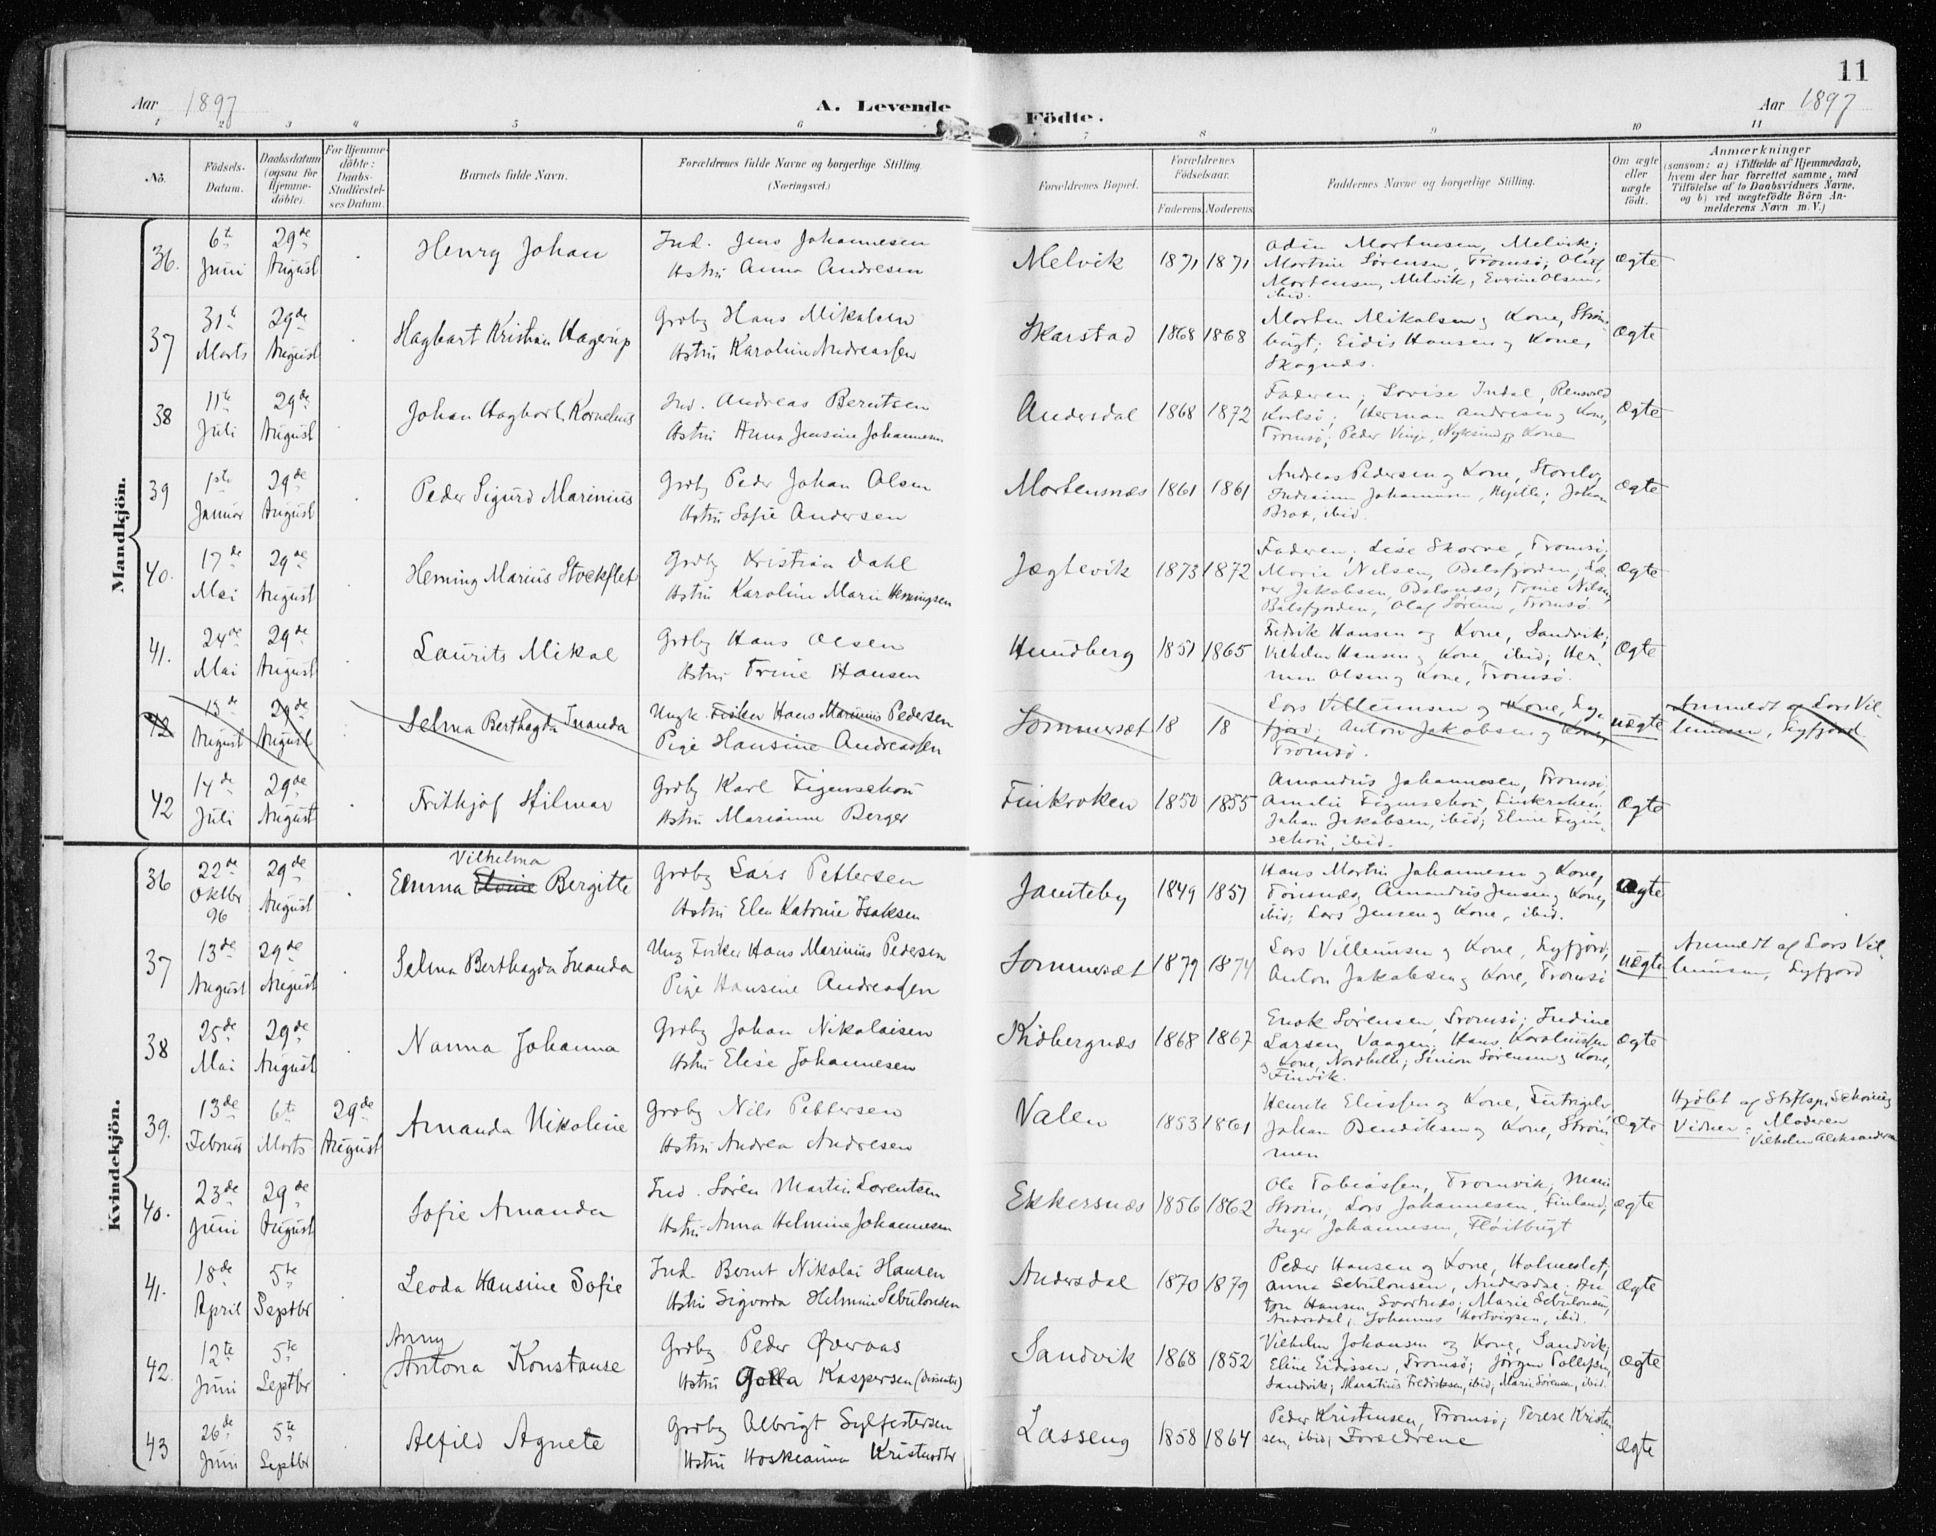 11
Aar 1897 A. Levende Födte. Aar 1897
1 2 3 4 5 6 7 8 9 10 11
No.
Födsels-Datum.
Daabsdatum (ogsaa for Hjemmedöbte).
For Hjemmedöbte: Daabs-Stadfæstelses Datum.
Barnets fulde Navn.
Forældrenes fulde Navne og borgerlige Stilling. (Næringsvei.)
Forældrenes Bopæl.
Forældrenes Födselsaar.
Faderens Moderens
Faddernes Navne og borgerlige Stilling.
Om ægte eller uægte födt.
Anmærkninger
(saasom: a) i Tilfælde af Hjemmedaab, hvem der har forrettet samme, med Tilföielse af to Daabsvidners Navne, og b) ved uægtefödte Börn Anmelderens Navn m. V.)
Mandkjön.
36. 6te Juni 29de August Henry Johan Ind. Jens Johannesen Hstru Anna Andresen Melvik 1871 1871 Odin Mortensen, Melvik; Martine Sørensen, Tromsø; Oluf Mortensen, Melvik; Evrine Olsen, ibid. Ægte
37 31te Marts 29de August Hagbart Kristian Hagerup Grdbg Hans Mikalsen Hstru Karoline Andreassen Skarstad 1868 1868 Morten Mikalsen og Kone, Strømbugt; Eidis Hansen og Kone, Skognæs. Ægte
38 11te Juli 29de August Johan Hagbart Kornelius Ind. Andreas Berntsen Hstru Anna Jensine Johannesen Andersdal 1868 1872 Faderen; Lovise Indal, Karlsø; Herman Andresen og Kone, Tromsø; Peder Kone Ægte
39 1ste Januar 29de August Peder Sigurd Marinius Grdbg Peder Johan Olsen Hstru Sofie Andersen Mortensnæs 1861 1861 Andreas Pedersen og Kone, Johannesen, Johan ibid. Ægte
40. 17de Mai 29de August Heming Marius Stockflet Grdbg Kristian Dahl Hstru Karoline Marie Hemingsen Jægtevik 1873 1872 Faderen; Lise Skorve, Tromsø; Marie Nilsen, Balsfjorden; Jakobsen, Balsnæs; Trine Nilsen, Balsfjorden, Olaf Sørens, Tromsø. Ægte
41. 24de Mai 29de August Laurits Mikal Grdbg Hans Olsen Hstru Trine Hansen Hundberg 1851 1865 Fredrik Hansen og Kone, Sandvik; Vilhelm Hansen og Kone, ibid; Herman Olsen og Kone, Tromsø. Ægte
42 13de August 29de August Selma Berthagda Inanda Ungk. Fisker Hans Marinius Pedersen Pige Hansine Andreassen Sommersæt 18 18 Lars Villumsen og Kone, Lyfjord; Anton Jakobsen og Kone, Tromsø. uægte Anmeldt af Lars Villumsen, Lyfjord.
42 14de Juli 29de August Frithjof Hilmar Grdbg Karl Figenschou Hstru Marianne Berger Finkroken 1850 1855 Amandus Johannesen, Tromsø; Amalie Figenschou, Finkroken; Johan Jakobsen, ibid; Eline Figenschou, ibid. Ægte
Kvindekjön.
36 22de Oktbr 96 29de August Emma Vilhelma Bergitte Grdbg Lars Pettersen Hstru Elen Katrine Isaksen Jamteby 1849 1851 Hans Martin Johannesen og Kone, Tønsnæs; Amandus Jensen og Kone, ibid; Lars Jensen og Kone, ibid. Ægte
37 13de August 29de August Selma Berthagda Inanda Ung Fisker Hans Marinius Pedersen Pige Hansine Andreassen Sommersæt 1879 1874 Lars Villumsen og Kone, Lyfjord; Anton Jakobsen og Kone, Tromsø uægte Anmeldt af Lars Villumsen, Lyfjord
38 25de Mai 29de August Nanna Johanna Grdbg Johan Nikolaisen Hstru Elise Johannesen Kidbergnæs 1868 1867 Enok Sørensen, Tromsø; Indine Larsen, Vaagen; Hans Karoliussen og Kone, Nordhella; Simon Sørensen og Kone, Finvik. Ægte
39. 13de Februar 6te Marts 29de August Amanda Nikoline Grdbg Nils Pettersen Hstru Andrea Andresen Valen 1853 1861 Henrik Eliassen og Kone, Johan Bendiksen og Kone, Strømmen Ægte Hjdbt af Stiftsp. Schøning Vidner: Moderen Vilhelm Aleksandersen
40. 23de Juni 29de August Sofie Amanda Ind. Søren Martin Lorentsen Hstru Anna Helmine Johannesen Ekkersnæs 1856 1862 Ole Tobiassen, Tromvik; Marie Strøm; Lars Johannesen, Finland; Inger Johannesen, Fløitbugt Ægte
41. 18de April 5te Septbr Leoda Hansine Sofie Ind. Bernt Nikolai Hansen Hstru Sigvarda Helmine Sebulonsen Andersdal 1870 1879 Peder Hansen og Kone, Holmeslet; Anna Sebulonsen, Andersdal; Anton Hansen, Svartnæs; Marie Sebulonsen, Andersdal; Johannes Hartvigsen, ibid. Ægte
42. 12te Juni 5te Septbr Anny Antona Konstanse Grdbg Peder Øveraas Hstru Golla Kaspersen (Dissenter) Sandvik 1868 1852 Vilhelm Johansen og Kone, Sandvik; Eline Eidissen, Tromsø; Jørgen Tollefsen, Sandvik; Maratius Fredriksen, ibid; Marie Sørensen, ibid. Ægte
43 26de Juni 5te Septbr Alfild Agnete Grdbg Albrigt Sylfestersen Hstru Hoskeanna Kristine Lasseng 1858 1864 Peder Kristensen, Tromsø; Terese Kristensen, ibid; Forældrene Ægte